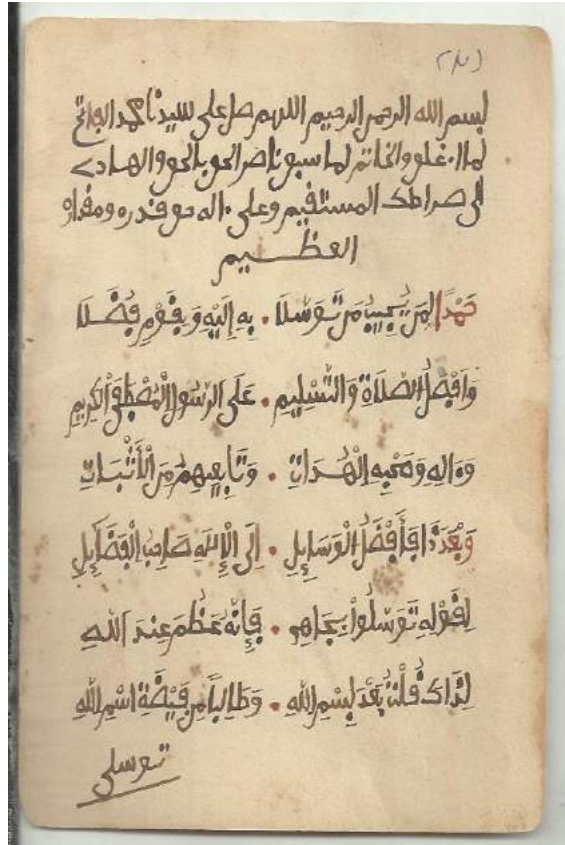 بسم الله الرحمن الرحيم اللهم صل على سيدنا محمد الفاتح
لما اغلق والخاتم لما سبق ناصر الحق بالحق والهادى
الى صراطك المستقيم وعلى ءاله حق قدره ومقداره
العظيم
حَمْدًا لِمَنْ يُجِيبُ مَنْ تَوَسَّلَا . بِهِ إِلَيْهِ وَبِقَوْمٍ فُضَلَا
وَأَفْضَلُ الصَّلَاةِ وَالتَّسْلِيمِ . عَلَى الرَّسُولِ الْمُصْطَفَى الْكَرِيمِ
وَءَالِهِ وَصَحْبِهِ الْهُدَاتِ . وَتَابِعِيهِمْ مِنَ الْأَثْبَاتِ
وَبَعْدَ ذَا فَأَفْضَلُ الْوَسَائِلِ . إِلَى الْإِلَٰهِ صَاحِبُ الْفَضَائِلِ
لِقَوْلِهِ تَوَسَّلُوا بِجَاهِي . فَإِنَّهُ عَظُمَ عِنْدَ اللهِ
لِذَاكَ قُلْتُ بَعْدَ بِسْمِ اللهِ . وَطَالِبًا مِنْ فَيْضَةِ اسْمِ اللهِ
توسلى